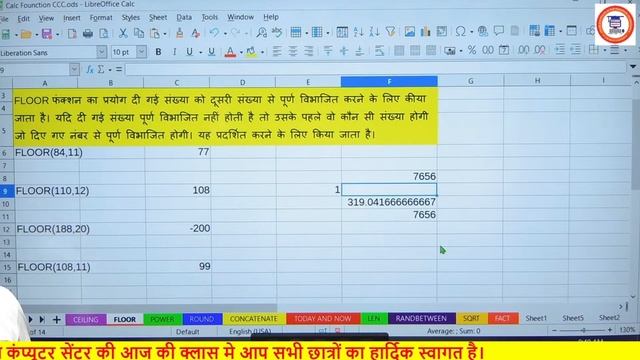 Calc Founction CCC.ods - LibreOffice Calc
Insert Format Styles Sheet Data Tools Window Help
Liberation Sans 10 pt
A B C D E F G H I
3
FLOOR फंक्शन का प्रयोग दी गई संख्या को दूसरी संख्या से पूर्ण विभाजित करने के लिए कीया
4 जाता है। यदि दी गई संख्या पूर्ण विभाजित नहीं होती है तो उसके पहले वो कौन सी संख्या होगी
5 जो दिए गए नंबर से पूर्ण विभाजित होगी। यह प्रदर्शित करने के लिए किया जाता है।
6 FLOOR(84,11) 77
7
8 7656
9 FLOOR(110,12) 108 1
10 319.041666666667
11 7656
12 FLOOR(188,20) -200
13
14
15 FLOOR(108,11) 99
16
CEILING FLOOR POWER ROUND CONCATENATE TODAY AND NOW LEN RANDBETWEEN SQRT FACT Sheet1 Sheet5 Sheet2
of 14 Default English (USA) Average: ; Sum: 0 130%
कंप्यूटर सेंटर की आज की क्लास मे आप सभी छात्रों का हार्दिक स्वागत है।